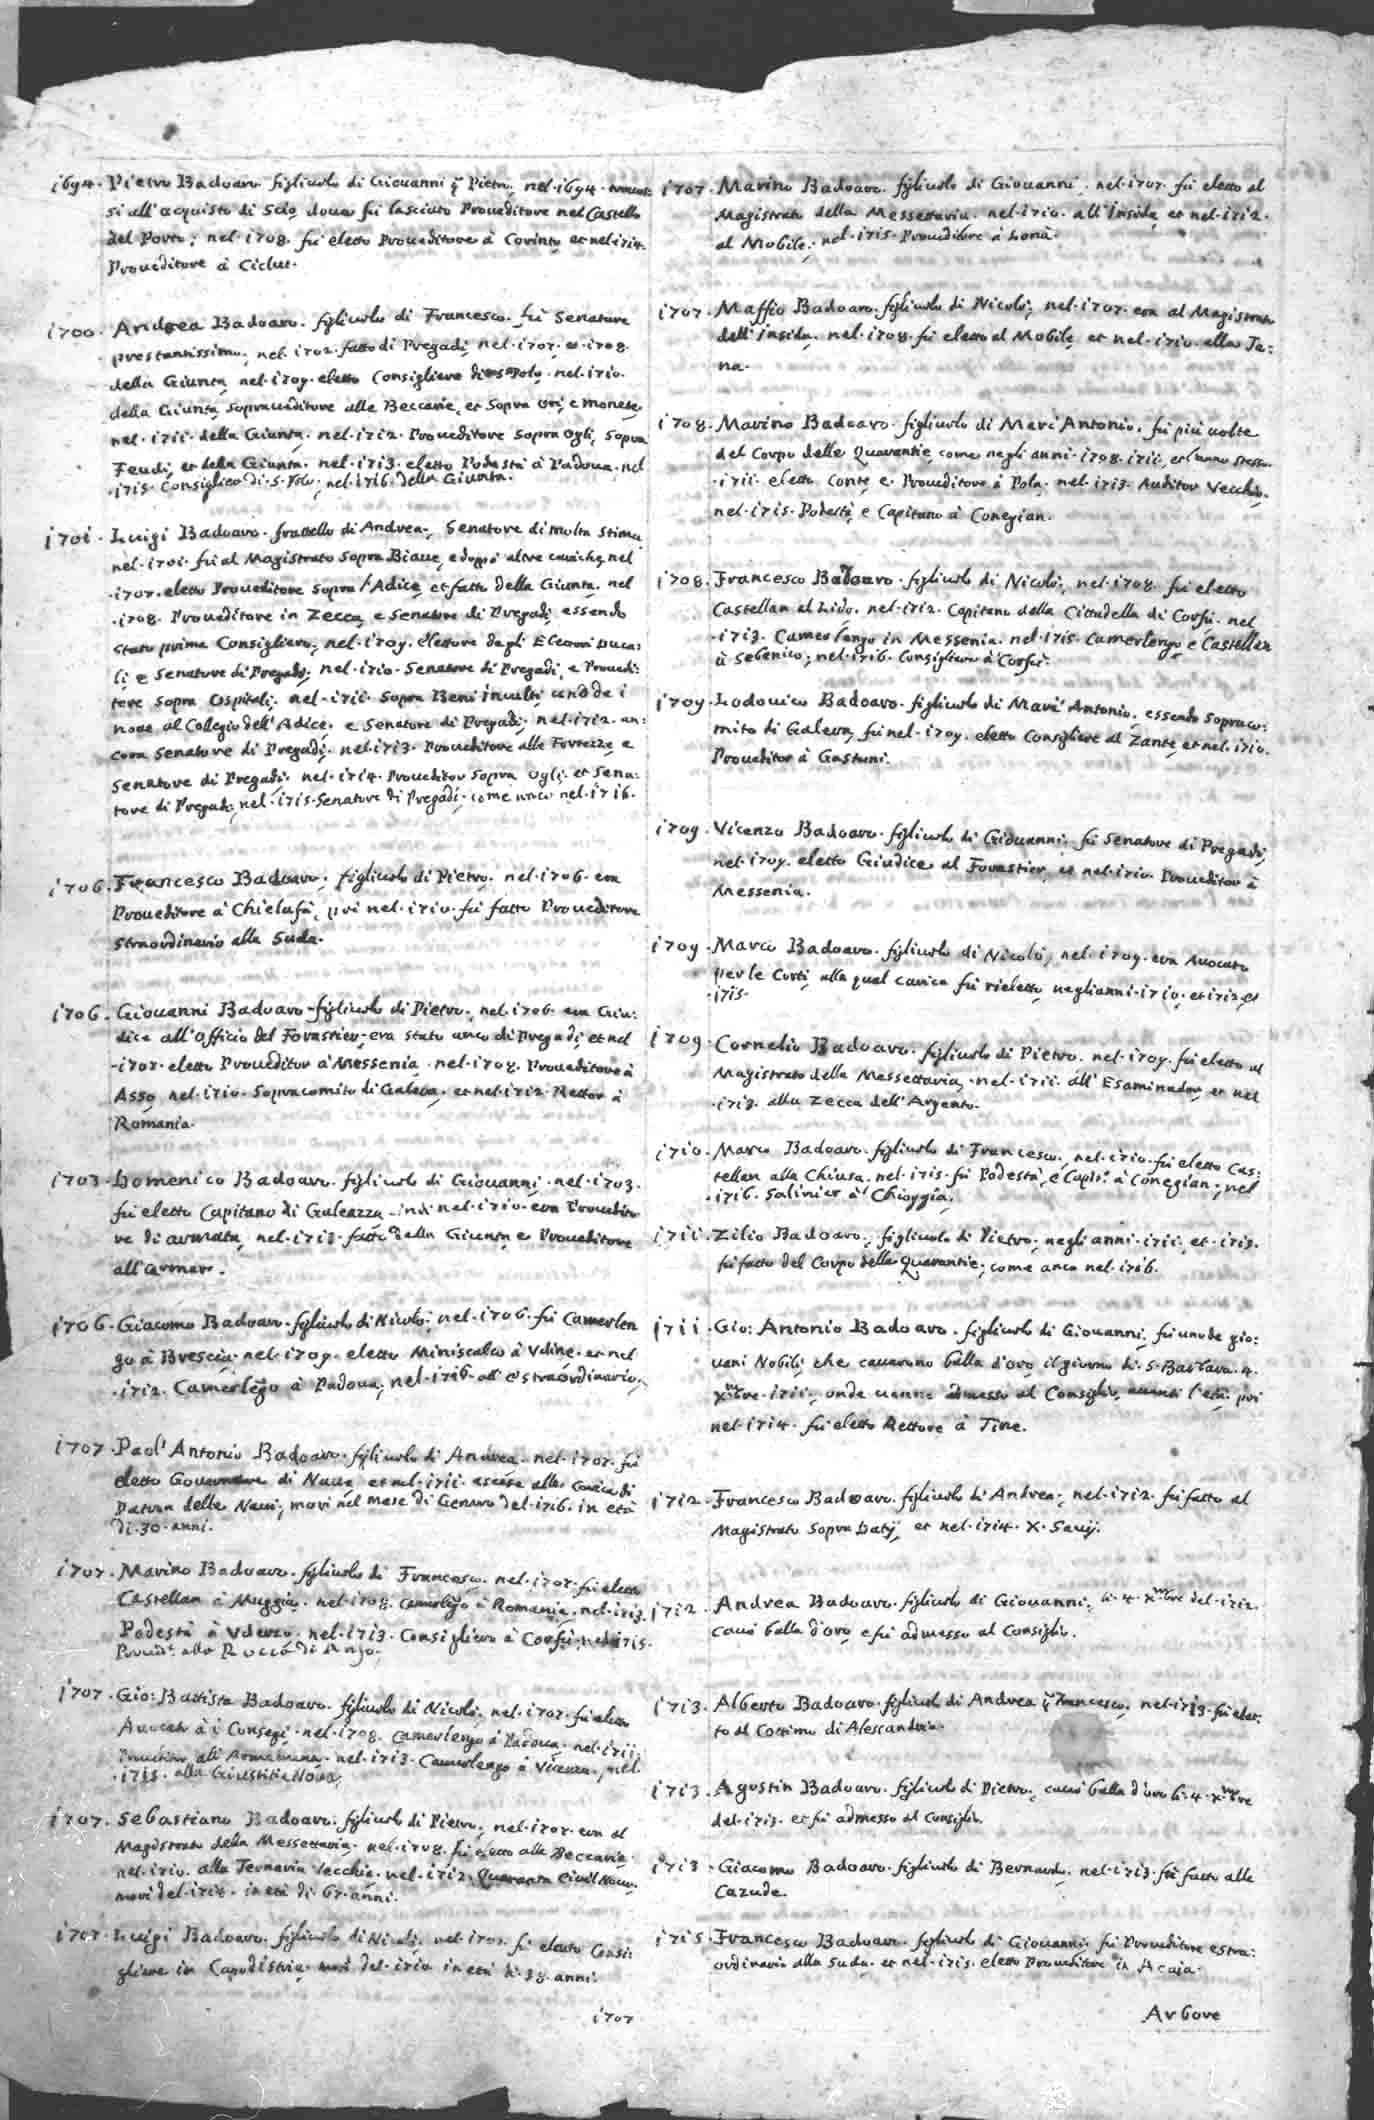 1694. Pietro Badoaro figliuolo di Giouanni q Pietro, nel 1694
si all'acquisto di Scio, doue fù lasciato Proueditore nel Castello
del Porto; nel 1708. fù eletto Proueditore à Corinto, et nel 1714.
Proueditore à Ciclut.
1700. Andrea Badoaro. figliuolo di Francesco. fù Senatore
prestantissimo, nel 1702. fatto di Pregadi, nel 1707, et 1708
della Giunta, nel 1709. eletto Consigliere di S Polo, nel 1710.
della Giunta, Soproueditore alle Beccarie, et Sopra Ori, e monete,
nel 1711. della Giunta, nel 1712. Proueditore Sopra Ogli, Sopra
Feudi, et della Giunta. nel 1713. eletto Podestà à Padoua, nel
1715. Consiglier di S. Polo, nel 1716. della Giunta.
1701. Luigi Badoaro. frattello di Andrea, Senatore di molta stima
nel 1701. fù al Magistrato Sopra Biaue, e doppò altre cariche, nel
1707. eletto Proueditore Sopra l'Adice, et fatto della Giunta, nel
1708. Proueditore in Zecca, e Senatore di Pregadi, essendo
stato prima Consigliero, nel 1709. elettore degli Elettori Duca:
li, e Senatore di Pregadi, nel 1710. Senatore di Pregadi, e Proued:
tore Sopra Ospitali, nel 1711. Sopra Beni inculti, uno de i
noue al Collegio dell'Adice, e Senatore di Pregadi, nel 1712. an:
cora Senatore di Pregadi, nel 1713. Proueditore alle Fortezze, e
Senatore di Pregadi, nel 1714. Proueditor Sopra Ogli, et Sena:
tore di Pregadi, nel 1715. Senatore di Pregadi, come anco nel 1716.
1706. Francesco Badoaro, figliuolo di Pietro, nel 1706. era
Proueditore à Chielafà, poi nel 1710. fù fatto Proueditore
Straordinario alla Suda.
1706. Giouanni Badoaro figliuolo di Pietro, nel 1706. era Giu:
dice all'Officio del Forestier, era stato anco di Pregadi, et nel
1707. eletto Proueditor à Messenia, nel 1708. Proueditore à
Asso, nel 1710. Sopracomito di Galera, et nel 1712. Rettor à
Romania.
1703. Domenico Badoaro. figliuolo di Giouanni. nel 1703.
fù eletto Capitano di Galeazza, indi nel 1710. era Proueditо
re di armata, nel 1713. fatto della Giunta, e Proueditore
all'Armar.
1706. Giacomo Badoaro figliuolo di Nicolò, nel 1706. fù Camerlen
go à Brescia, nel 1709. eletto Miniscalco à Vdine, et nel
1712. Camerlego à Padoua, nel 1716 all'Estraordinario,
1707. Paol'Antonio Badoaro. figliuolo di Andrea. nel 1707. fù
eletto Gouernatore di Naue, et nel 1711. ascese alla Carica di
Patron delle Naui, morì nel mese di Genaro del 1716. in età
di 30. anni.
1707. Marino Badoaro. figliuolo di Francesco. nel 1707. fù eletto
Castellan à Muggia, nel 1708. Camerlego à Romania, nel 1713.
Podestà à Vderzo, nel 1713. Consigliero à Corfù, nel 1715.
Proued.r alla Rocca di Anfo.
1707. Gio: Battista Badoaro. figliuolo di Nicolò, nel 1707. fù eletto
Auocato à i Consegi, nel 1708. Camerlengo à Padoua. nel 1711.
all' nel 1713. Camerlengo à Vicenza, nel
1715. alla Giustitia Noua.
1707. Sebastiano Badoaro. figliuolo di Pietro, nel 1707. era al
Magistrato della Messettaria, nel 1708. fù eletto alle Beccarie.
nel 1710. alla Ternaria Vecchia. nel 1712. Quaranta Ciuil Nouo,
morì del 1716. in età di 67. anni.
1707. Luigi Badoaro. figliuolo di Nicolò, nel 1707. fù eletto Consi:
gliere in Capodistria, morì del 1710 in età di 38. anni.
1707
1707. Marino Badoaro. figliuolo di Giouanni, nel 1707. fù eletto al
Magistrato della Messettaria. nel 1710. all'Insida, et nel 1712.
al Mobile, nel 1715. Proueditore à Lonà.
1707. Maffio Badoaro. figliuolo di Nicolò, nel 1707. era al Magistrato
dell'insida, nel 1708. fù eletto al Mobile, et nel 1710. alla Ta:
na.
1708. Marino Badoaro. figliuolo di Marc'Antonio, fù più uolte
del Corpo delle Quarantie, come negli anni 1708. 1711, et l'anno stesso
1711. eletto Conte, e Proueditore à Pola, nel 1713. Auditor Vecchio,
nel 1715. Podestà, e Capitano à Conegian.
1708. Francesco Badoaro. figliuolo di Nicolò, nel 1708. fù eletto
Castellan al Lido. nel 1712. Capitano della Cittadella di Corfù. nel
1713. Camerlengo in Messenia. nel 1715. Camerlengo, e Castellan
à Sebenico, nel 1716. Consigliero à Corfù.
1709. Lodouico Badoaro. figliuolo di Marc'Antonio, essendo Sopraco:
mito di Galera, fù nel 1709. eletto Consigliere al Zante, et nel 1710.
Proueditor à Gastuni.
1709. Vicenzo Badoaro. figliuolo di Giouanni, fù Senatore di Pregadi,
nel 1709. eletto Giudice al Forestier, et nel 1710. Proueditor à
Messenia.
1709. Marco Badoaro. figliuolo di Nicolò, nel 1709. era Auocato
per le Corti, alla qual carica fù rieletto negli anni 1710, et 1712, et
1715.
1709. Cornelio Badoaro. figliuolo di Pietro. nel 1709. fù eletto al
Magistrato della Messettaria, nel 1711. all'Esaminador, et nel
1713. alla Zecca dell'Argento.
1710. Marco Badoaro. figliuolo di Francesco, nel 1710. fù eletto Cas:
tellan alla Chiusa, nel 1715. fù Podestà, e Capi.o à Conegian, nel
1716. Salinier à Chioggia.
1711. Zilio Badoaro, figliuolo di Pietro, negli anni 1711, et 1715.
fù fatto del Corpo delle Quarantie, come anco nel 1716.
1711. Gio: Antonio Badoaro. figliuolo di Giouanni, fù uno de gio:
uani Nobili, che cauarono balla d'oro, il giorno di S. Barbara. 4.
Xmbre 1711, onde uenne admesso al Consiglio, auanti l'età. poi
nel 1714. fù eletto Rettore à Tine.
1712. Francesco Badoaro. figliuolo di Andrea, nel 1712. fù fatto al
Magistrato Sopra Datij, et nel 1714. X. Sauij.
1712. Andrea Badoaro. figliuolo di Giouanni, li 4. Xmbre del 1712.
cauò balla d'oro, e fù admesso al Consiglio.
1713. Alberto Badoaro. figliuolo di Andrea q Francesco, nel 1713. fù elet:
to al Cottimo di Alessandria.
1713. Agostin Badoaro. figliuolo di Pietro, cauò balla d'oro li 4. Xmbre
del 1715. et fù admesso al Consiglio.
1713. Giacomo Badoaro. figliuolo di Bernardo, nel 1713. fù fatto alle
Cazude.
1715. Francesco Badoaro. figliuolo di Giouanni. fù Proueditore estra:
ordinario alla Suda. et nel 1715. eletto Proueditore in Acaia.
Arbore